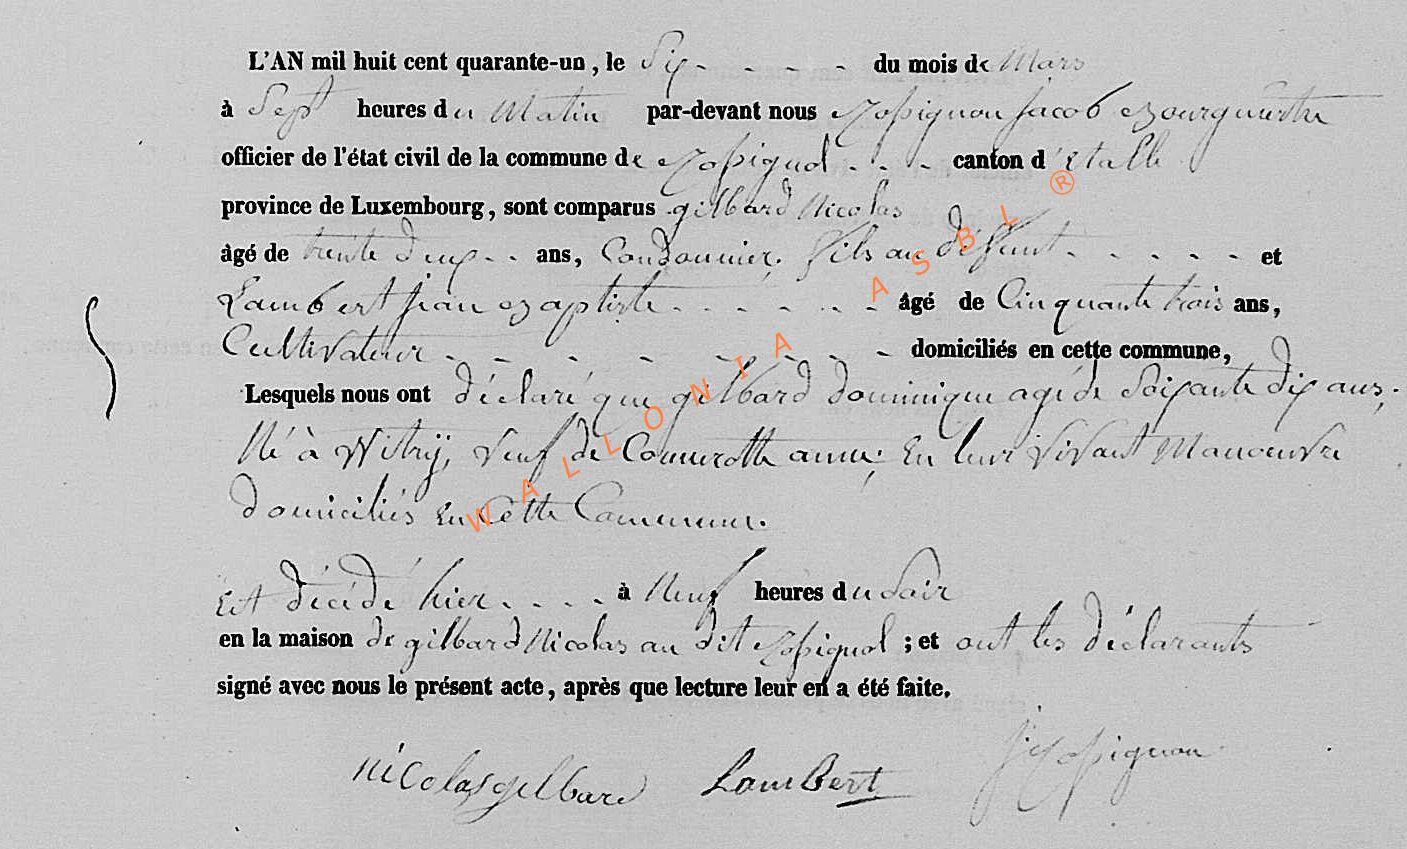 L'AN mil huit cent quarante-un, le Six - - - - - du mois de Mars
à Sept heures du Matin par-devant nous Rossignon Jacob Bourguestre
officier de l'état civil de la commune de Rossignol - - - canton d'Etalle
province de Luxembourg, sont comparus gilbard Nicolas
âgé de trente deux - - ans, Cordonnier, fils au défunt - - - - - et
Lambert jean Baptiste - - - - - - - âgé de Cinquante trois ans,
Cultivateur - - - - - - - - domiciliés en cette commune,
Lesquels nous ont déclaré que gilbard dominique agé de Soixante dix ans,
Né à Witry, veuf de anne; En leur vivant Manoeuvre
domiciliés En Cette Commune.
Est décédé hier - - - - à Neuf heures du Soir
en la maison de gilbard Nicolas au dit Rossignol ; et ont les déclarants
signé avec nous le présent acte, après que lecture leur en a été faite.
nicolas gilbard Lambert j Rossignon
WALLONIA ASBL ®